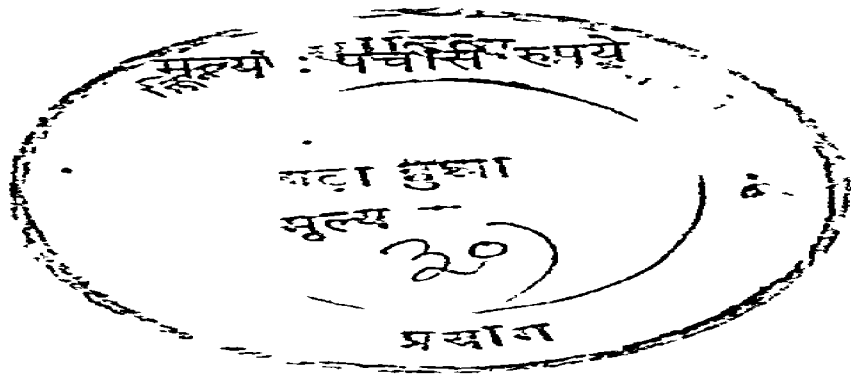 मूल्य : पचीस रुपये
बढ़ा हुआ
मूल्य —
३०)
प्रयाग